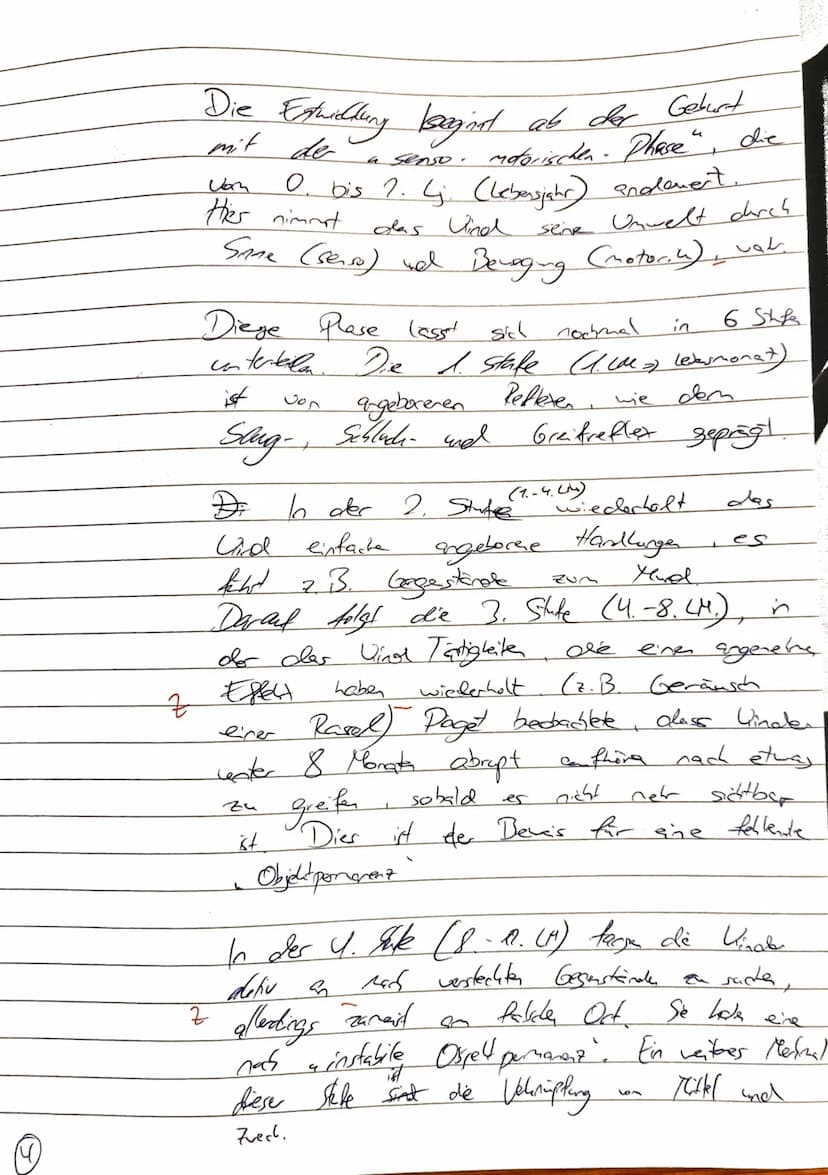 Die Entwicklung beginnt ab der Geburt
mit der „senso-motorischen-Phase", die
vom 0. bis 2. Lj. (Lebensjahr) andauert.
Hier nimmt das Kind seine Umwelt durch
Sinne (senso) und Bewegung (motorik), wahr.
Diese Phase lässt sich nochmal in 6 Stufen
unterteilen. Die 1. Stufe (1. LM => Lebensmonat)
ist von angeborenen Reflexen, wie dem
Saug-, Schluck- und Greifreflex geprägt.
In der 2. Stufe (1.-4. LM) wiederholt das
Kind einfache angeborene Handlungen, es
führt z.B. Gegenstände zum Mund.
Darauf folgt die 3. Stufe (4.-8. LM.), in
der das Kind Tätigkeiten, die einen angenehmen
Z Effekt haben wiederholt. (z.B. Geräusch
einer Rassel) Piaget beobachtete, dass Kinder
unter 8 Monaten abrupt aufhören nach etwas
zu greifen, sobald es nicht mehr sichtbar
ist. Dies ist der Beweis für eine fehlende
„Objektpermanenz"
In der 4. Stufe (8.-12. LM) fangen die Kinder
aktiv an nach versteckten Gegenständen zu suchen,
Z allerdings zumeist am falschen Ort. Sie haben eine
noch „instabile Objektpermanenz". Ein weiteres Merkmal
dieser Stufe ist die Verknüpfung von Mittel und
Zweck.
4